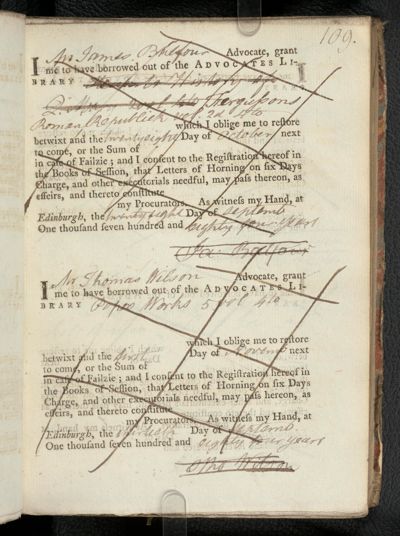 109.
I Mr James Balfour Advocate, grant
me to have borrowed out of the ADVOCATES LI-
BRARY
Fergussons
Roman Republick vol 2d 4to
which I oblige me to restore
betwixt and the twenty eight Day of October next
to come, or the Sum of
in case of Failzie; and I consent to the Registration hereof in
the Books of Session, that Letters of Horning on six Days
Charge, and other executorials needful, may pass thereon, as
effeirs, and thereto constitute
my Procurators. As witness my Hand, at
Edinburgh, the twenty eight Day of Septemb.
One thousand seven hundred and eighty four years
Ja. Balfour
I Mr Thomas Wilson Advocate, grant
me to have borrowed out of the ADVOCATES LI-
BRARY Popes Works 5 vol 4to
which I oblige me to restore
betwixt and the first Day of Novemr next
to come, or the Sum of
in case of Failzie; and I consent to the Registration hereof in
the Books of Session, that Letters of Horning on six Days
Charge, and other executorials needful, may pass hereon, as
effeirs, and thereto constitute
my Procurators. As witness my Hand, at
Edinburgh, the Day of Septemb.
One thousand seven hundred and eighty four years
Wilson